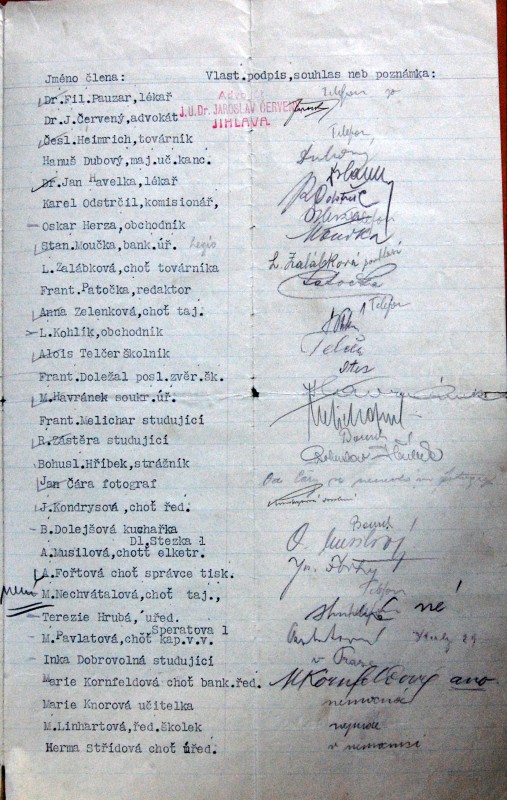 Jméno člena: Vlast.podpis,souhlas neb poznámka:
Dr.Fil.Pauzar,lékař Telefon
Dr.J.Červený,advokát J.U.Dr. JAROSLAV ČERVENÝ
JIHLAVA.
Česl.Heimrich,továrník Telefon
Hanuš Dubový,maj.uč.kanc. Dubový
Dr.Jan Havelka,lékař
Karel Odstrčil,komisionář, K Odstrčil
Oskar Herza,obchodník
Stan.Moučka,bank.úř. Moučka
L.Zalábková,choť továrníka L. Zalábková
Frant.Patočka,redaktor Patočka
Anna Zelenková,choť taj. Telefon
L.Kohlík,obchodník
Alois Telčer školník Telčer
Frant.Doležal posl.zvěr.šk.
M.Havránek soukr.úř. Havránek
Frant.Melichar studující Melichar
R.Zástěra studující
Bohusl.Hříbek,strážník
Jan Čára fotograf
J.Kondrysová,choť řed.
B.Dolejšová kuchařka
Dl.Stezka 1
A.Musilová,chott elketr. Musilová
A.Fořtová choť správce tisk.
není M.Nechvátalová,choť taj., Telefon
Terezie Hrubá, úřed. né
Speratova 1
M.Pavlatová,choť kap.v.v.
Inka Dobrovolná studující v Praze
Marie Kornfeldová choť bank.řed. MKornfeldová ano.
Marie Knorová učitelka nemocná
M.Linhartová,řed.školek nepujde
Herma Střídová choť úřed. v nemocnici